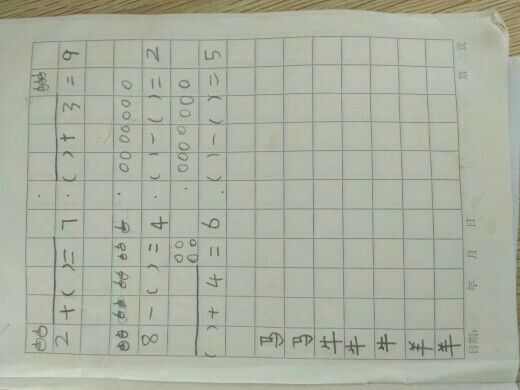 2+( )=7 . ( )+3=9
8-( )=4 . ( )-( )=2
( )+4=6 . ( )-( )=5
马
马
牛
牛
牛
羊
羊
日期: 年 月 日 第 页